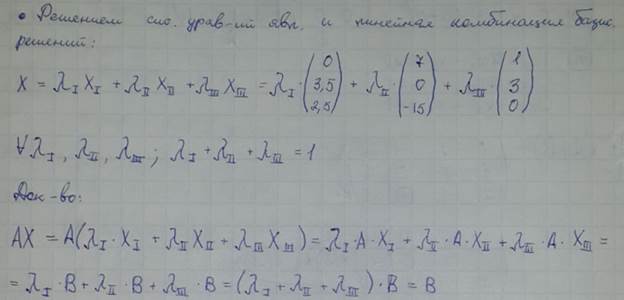 • Решением сис. урав-ий явл. и линейная комбинация базис.
решений:
X = λ_I X_I + λ_II X_II + λ_III X_III = λ_I · (0 3,5 2,5) + λ_II · (7 0 -15) + λ_III · (1 3 0)
∀ λ_I, λ_II, λ_III; λ_I + λ_II + λ_III = 1
Док-во:
AX = A(λ_I · X_I + λ_II X_II + λ_III X_III) = λ_I · A · X_I + λ_II · A · X_II + λ_III · A · X_III =
= λ_I · B + λ_II · B + λ_III · B = (λ_I + λ_II + λ_III) · B = B